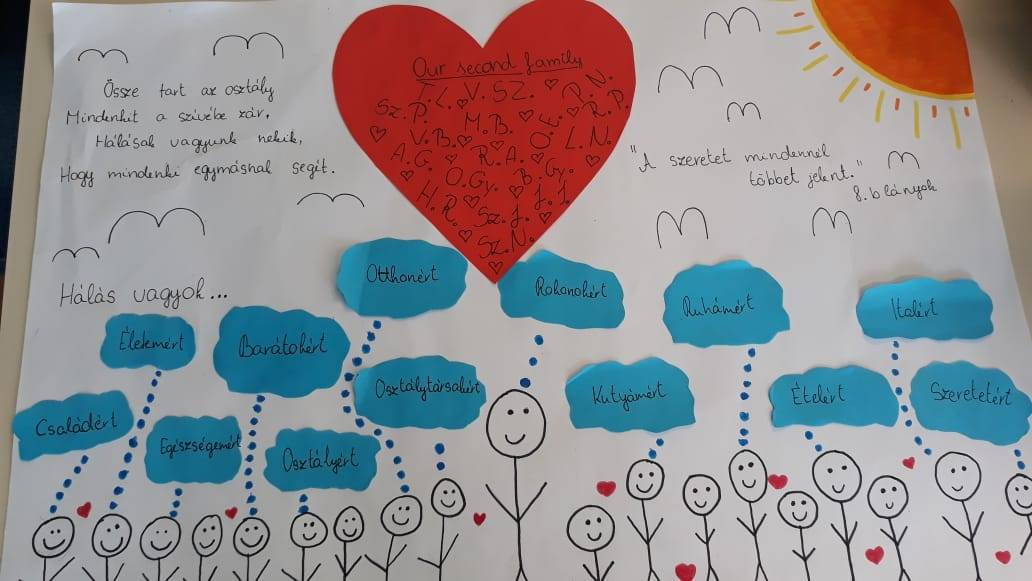 Össze tart az osztály
Mindenkit a szívébe zár,
Hálásak vagyunk nekik,
Hogy mindenki egymásnak segít.
Our second family
T.L. V. SZ. D. N.
Sz. P. M. B. O. E. R. P.
V. B. L. N.
A. G. R. A.
O. Gy. B. Gy.
H. R. Sz. J. J. J.
Sz. N.
"A szeretet mindennél
többet jelent."
8.b lányok
Hálás vagyok...
Otthonért
Rokonokért
Ruhámért
Italért
Életemért
Barátokért
Osztálytársakért
Kutyámért
Ételért
Szeretetért
Családért
Egészségemért
Osztályért